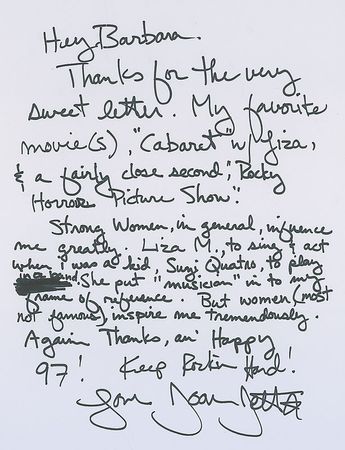 Hey Barbara.
Thanks for the very
sweet letter. My favorite
movie(s), "Cabaret" w/ Liza,
& a fairly close second, "Rocky
Horror Picture Show".
Strong Women, in general, influence
me greatly. Liza M., to sing & act
when i was a kid, Suzi Quatro, to play
in a band. She put "musician" in to my
frame of reference. But women (most
not famous), inspire me tremendously.
Again Thanks, an' Happy
97! Keep Rockin Hard!
Love Joan Jett